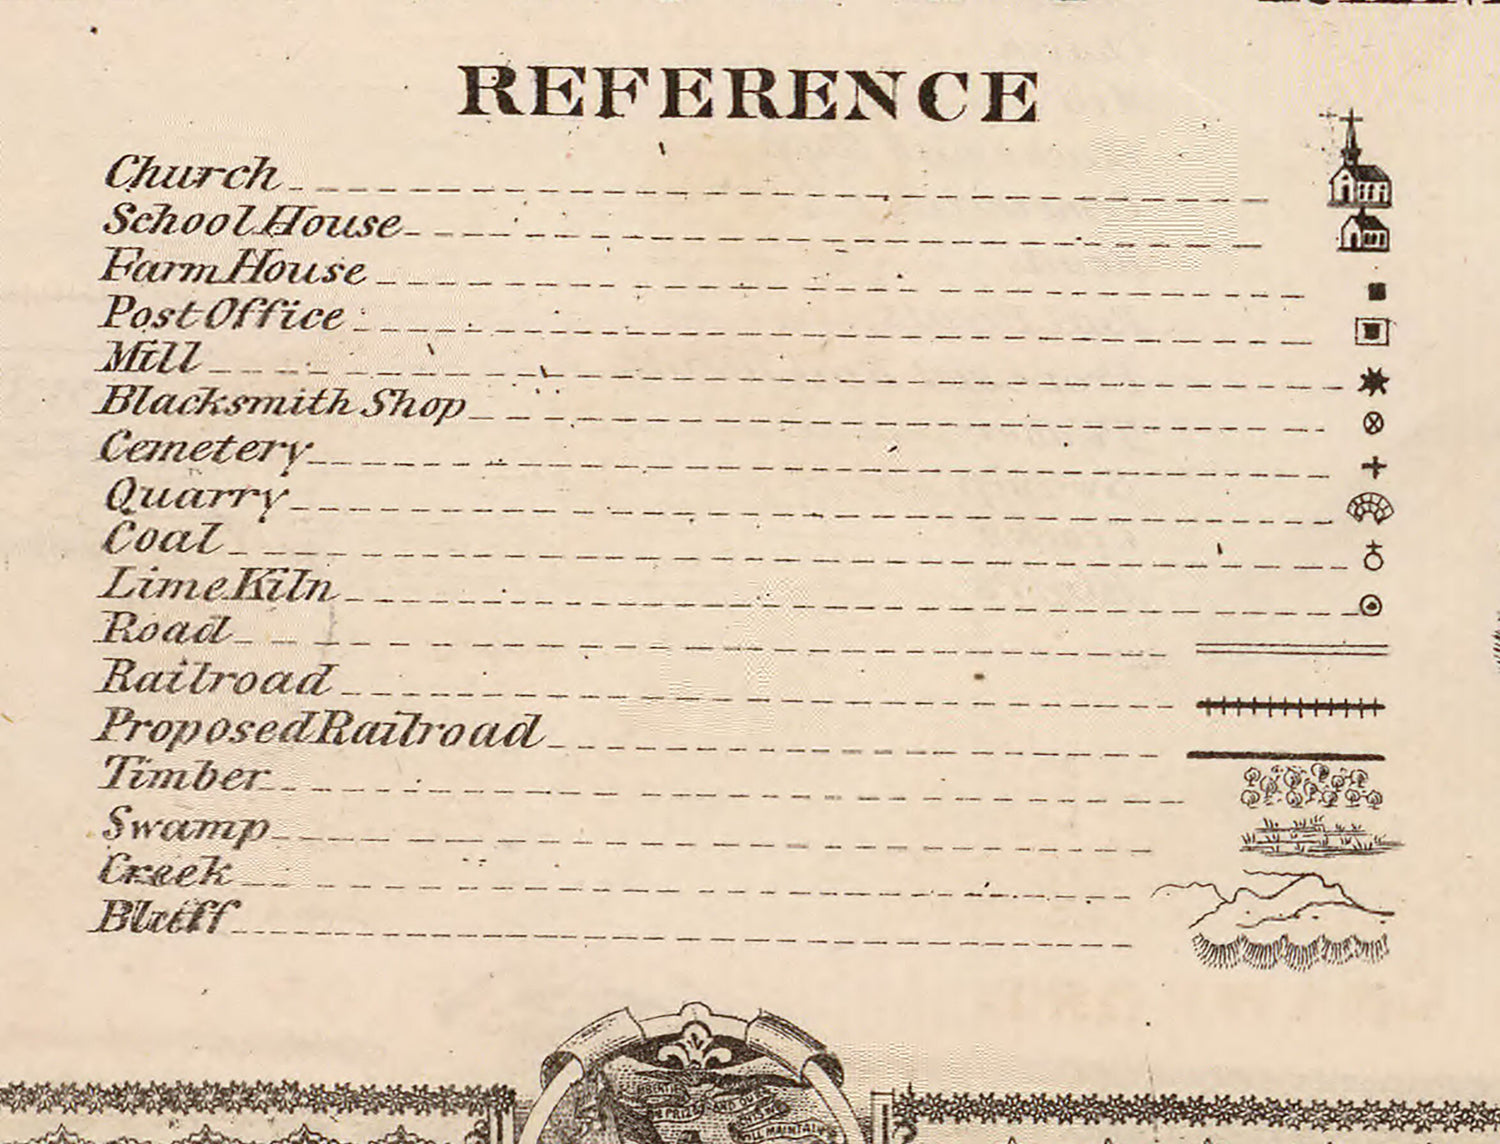 REFERENCE
Church
School House
Farm House
Post Office
Mill
Blacksmith Shop
Cemetery
Quarry
Coal
Lime Kiln
Road
Railroad
Proposed Railroad
Timber
Swamp
Creek
Bluff
LIBERTIES
PRIZE AND OUR
WE
WILL MAINTAIN